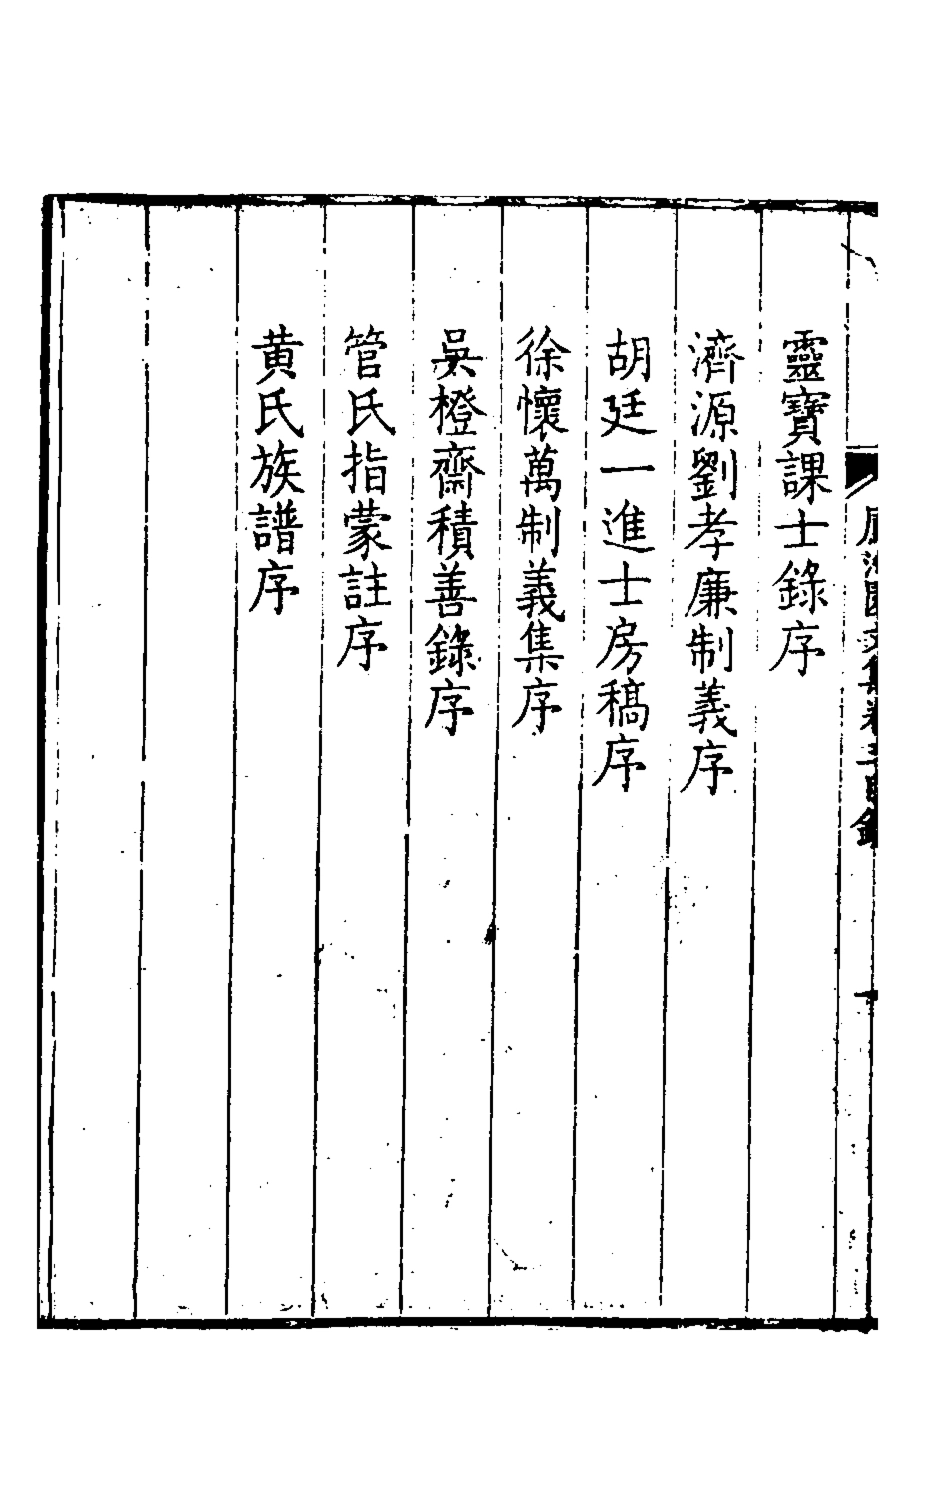 靈寶課士錄序
濟源劉孝廉制義序
胡廷一進士房稿序
徐懷萬制義集序
吳橙齋積善錄序
管氏指蒙註序
黄氏族譜序